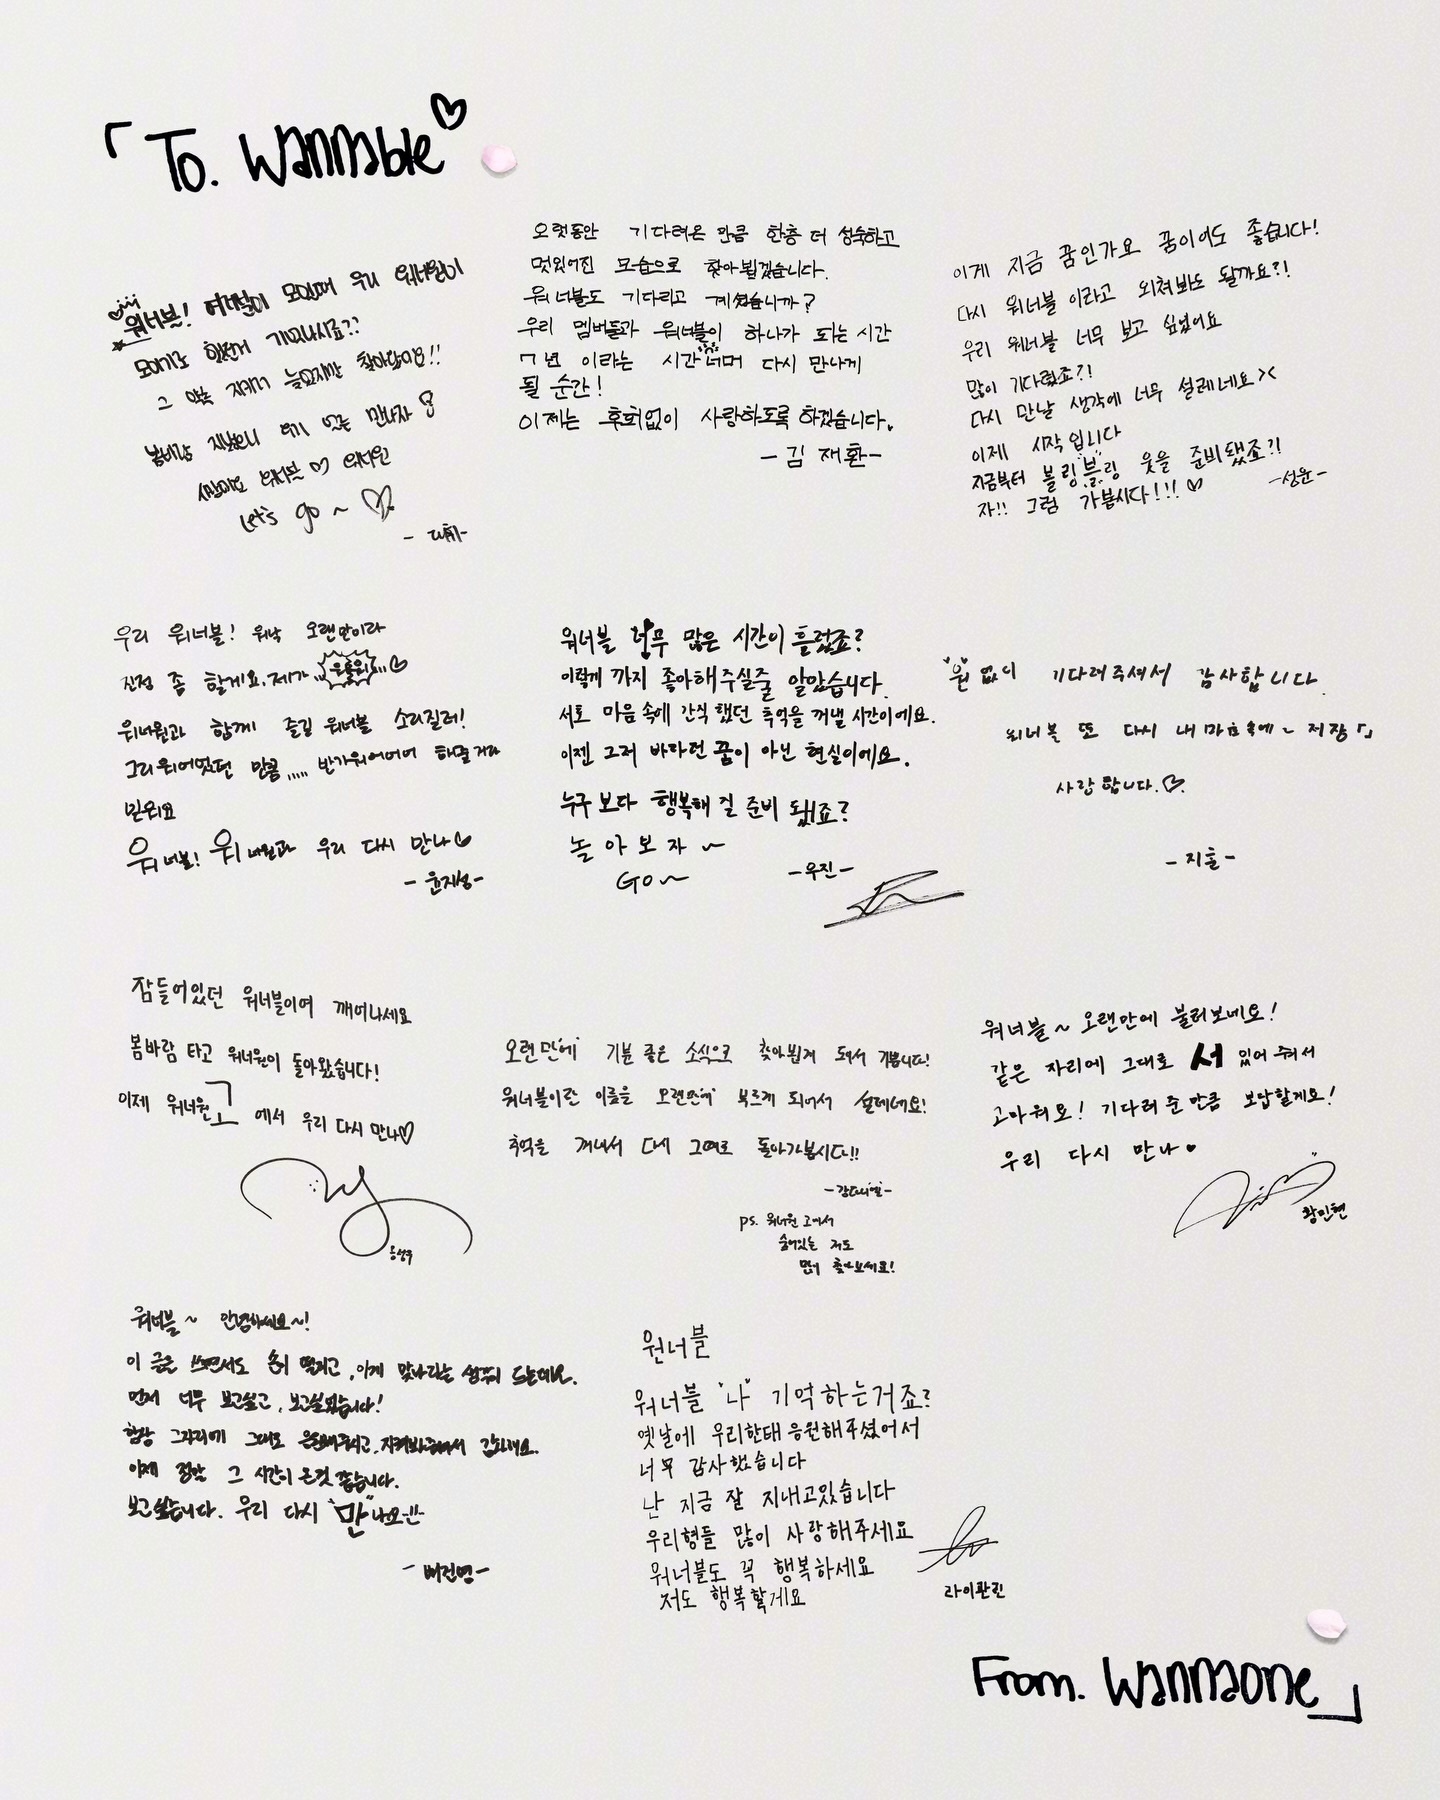 「To. Wannable♡
워너블! 여러분이 모일때 우리 워너원이
모이기로 했던거 기억나시죠??
그 약속 지키러 늦었지만 찾아왔어요!!
봄바람 지났으니 여기 있는 만나자
사랑해요 워너블♡ 워너원
Let's go~ ♡
- 대휘-
오랫동안 기다려온 만큼 한층 더 성숙하고
멋있어진 모습으로 찾아뵙겠습니다.
워너블도 기다리고 계셨습니까?
우리 멤버들과 워너블이 하나가 되는 시간
7년 이라는 시간 너머 다시 만나게
될 순간!
이제는 후회없이 사랑하도록 하겠습니다.
-김재환-
이게 지금 꿈인가요 꿈이어도 좋습니다!
다시 워너블이라고 외쳐봐도 될까요?!
우리 워너블 너무 보고 싶었어요
많이 기다렸죠?!
다시 만날 생각에 너무 설레네요><
이제 시작입니다
지금부터 블링"블"링 웃을 준비됐죠?!
자!! 그럼 가봅시다!!!♡
-성운-
우리 워너블! 워낙 오랜만이라
진정 좀 할게요. 제가 ...♡
워너원과 함께 즐길 워너블 소리질러!
그리워어했던 만큼..... 반가워어어어 해줄거라
믿어요
워너블! 워너원과 우리 다시 만나♡
-윤지성-
워너블 너무 많은 시간이 흘렀죠?
이렇게 까지 좋아해주실줄 알았습니다.
서로 마음속에 간직했던 추억을 꺼낼 시간이에요.
이젠 그저 바라던 꿈이 아닌 현실이에요.
누구보다 행복해질 준비 됐죠?
놀아보자~
Go~
-우진-
"원"없이 기다려주셔서 감사합니다.
워너블 또 다시 내 마음속에~ 저장「」
사랑합니다.♡
-지훈-
잠들어있던 워너블이여 깨어나세요
봄바람 타고 워너원이 돌아왔습니다!
이제 워너원고에서 우리 다시 만나♡
옹성우
오랜만에 기분 좋은 소식으로 찾아뵙게 되어서 기쁩니다!
워너블이란 이름을 오랜만에 부르게 되어서 설레네요!
추억을 꺼내서 다시 그때로 돌아가봅시다!!
-강다니엘-
ps. 워너원 고에서
숨어있는 저도
많이 찾아보세요!
워너블~ 오랜만에 불러보네요!
같은 자리에 그대로 서 있어 줘서
고마워요! 기다려 준 만큼 보답할게요!
우리 다시 만나♥
황민현
워너블~ 안녕하세요~!
이 글을 쓰면서도 손이 떨리고, 이게 맞나라는 생각이 드는데요.
먼저 너무 보고싶고, 보고싶었습니다!
항상 그자리에 그대로 응원해주시고, 지켜봐주셔서 감사해요.
이제 정말 그 시간이 온것 같습니다.
보고싶습니다. 우리 다시 "만"나요!!
-배진영-
워너블
워너블 "나" 기억하는거죠?
옛날에 우리한테 응원해주셨어서
너무 감사했습니다
난 지금 잘 지내고있습니다
우리형들 많이 사랑해주세요
워너블도 꼭 행복하세요
저도 행복할게요
라이관린
From. Wannaone」